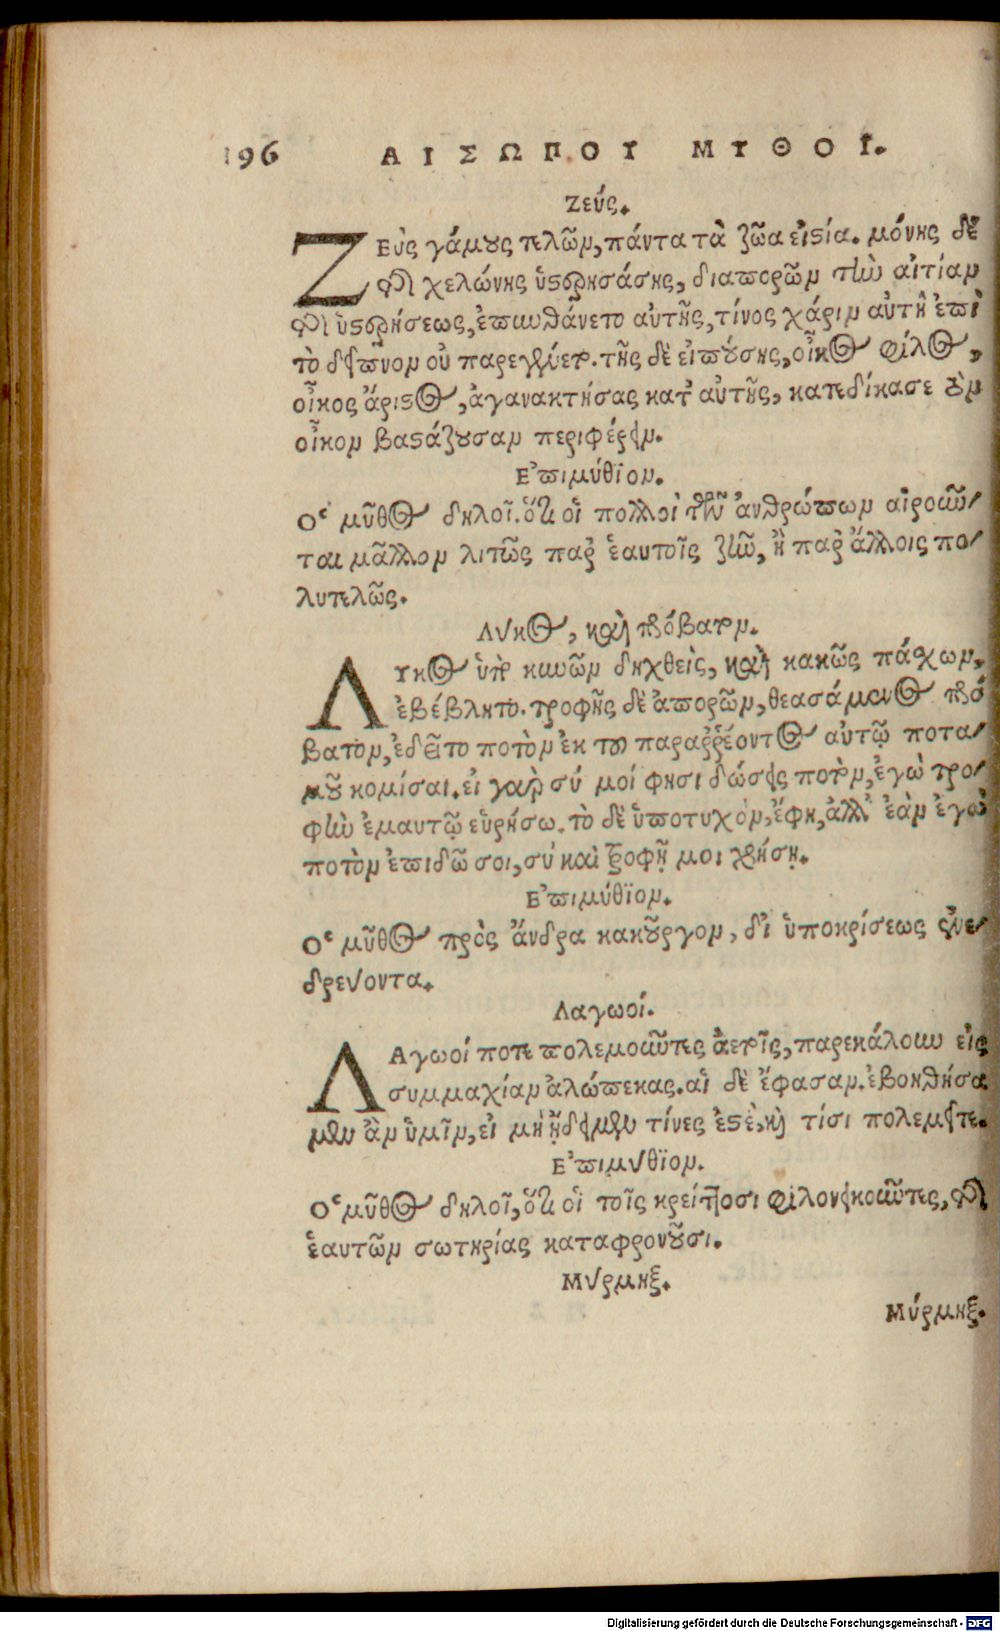 196 ΑΙΣΩΠΟΥ ΜΥΘΟΙ.
Ζεύς.
ΖΕὺς γάμους τελῶν, πάντα τὰ ζῶα εἱστία. μόνης δὲ
τῆς χελώνης ὑστρησάσης, διαπορῶν τὴν αἰτίαν
τῆς ὑστρήσεως, ἐπυνθάνετο αὐτῆς, τίνος χάριν αὐτὴ ἐπὶ
τὸ δεῖπνον οὐ παρεγένετο. τῆς δὲ εἰπούσης, οἶκος φίλος,
οἶκος ἄριστος, ἀγανακτήσας κατ' αὐτῆς, κατεδίκασε τὸν
οἶκον βαστάζουσαν περιφέρειν.
Επιμύθϊον.
Ο μῦθος δηλοῖ. ὅτι οἱ πολλοὶ τῶν ἀνθρώπων αἱροῦν
ται μᾶλλον λιτῶς παρ' ἑαυτοῖς ζῆν, ἢ παρ' ἄλλοις πο
λυτελῶς.
Λύκος, καὶ πρόβατον.
ΛΥκος ὑπὸ κυνῶν δηχθεὶς, καὶ κακῶς πάσχων,
ἐβέβλητο. τροφῆς δὲ ἀπορῶν, θεασάμενος πρό
βατον, ἐδεῖτο ποτὸν ἐκ τοῦ παραῤῥέοντος αὐτῷ ποτα
μοῦ κομίσαι. εἰ γὰρ σύ μοί φησι δώσεις ποτὸν, ἐγὼ τρο
φὴν ἐμαυτῷ εὑρήσω. τὸ δὲ ὑποτυχὸν, ἔφη, ἀλλ' ἐὰν ἐγὼ
ποτὸν ἐπιδῶ σοι, σύ καὶ τροφῇ μοι χρήσῃ.
Επιμύθϊον.
Ο μῦθος πρὸς ἄνδρα κακοῦργον, δι' ὑποκρίσεως ἐνε
δρεύοντα.
Λαγωοί.
ΛΑγωοί ποτε πολεμοῦντες ἀετοῖς, παρεκάλουν εἰς
συμμαχίαν ἀλώπεκας. αἱ δὲ ἔφασαν. ἐβοηθήσα
μεν ἂν ὑμῖν, εἰ μὴ ᾔδειμεν τίνες ἐστὲ, καὶ τίσι πολεμεῖτε.
Επιμύθϊον.
Ο μῦθος δηλοῖ, ὅτι οἱ τοῖς κρείττοσι φιλονεικοῦντες, τῆς
ἑαυτῶν σωτηρίας καταφρονοῦσι.
Μύρμηξ.
Μύρμηξ.
Digitalisierung gefördert durch die Deutsche Forschungsgemeinschaft - DFG